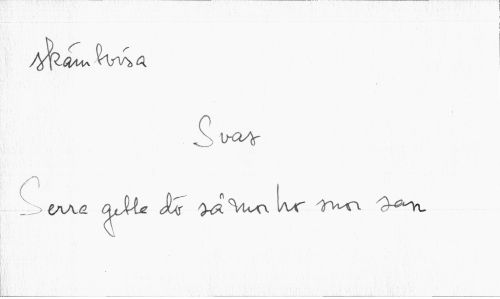 skämtvisa
Svar
Serra gette dö så mor ho mor san